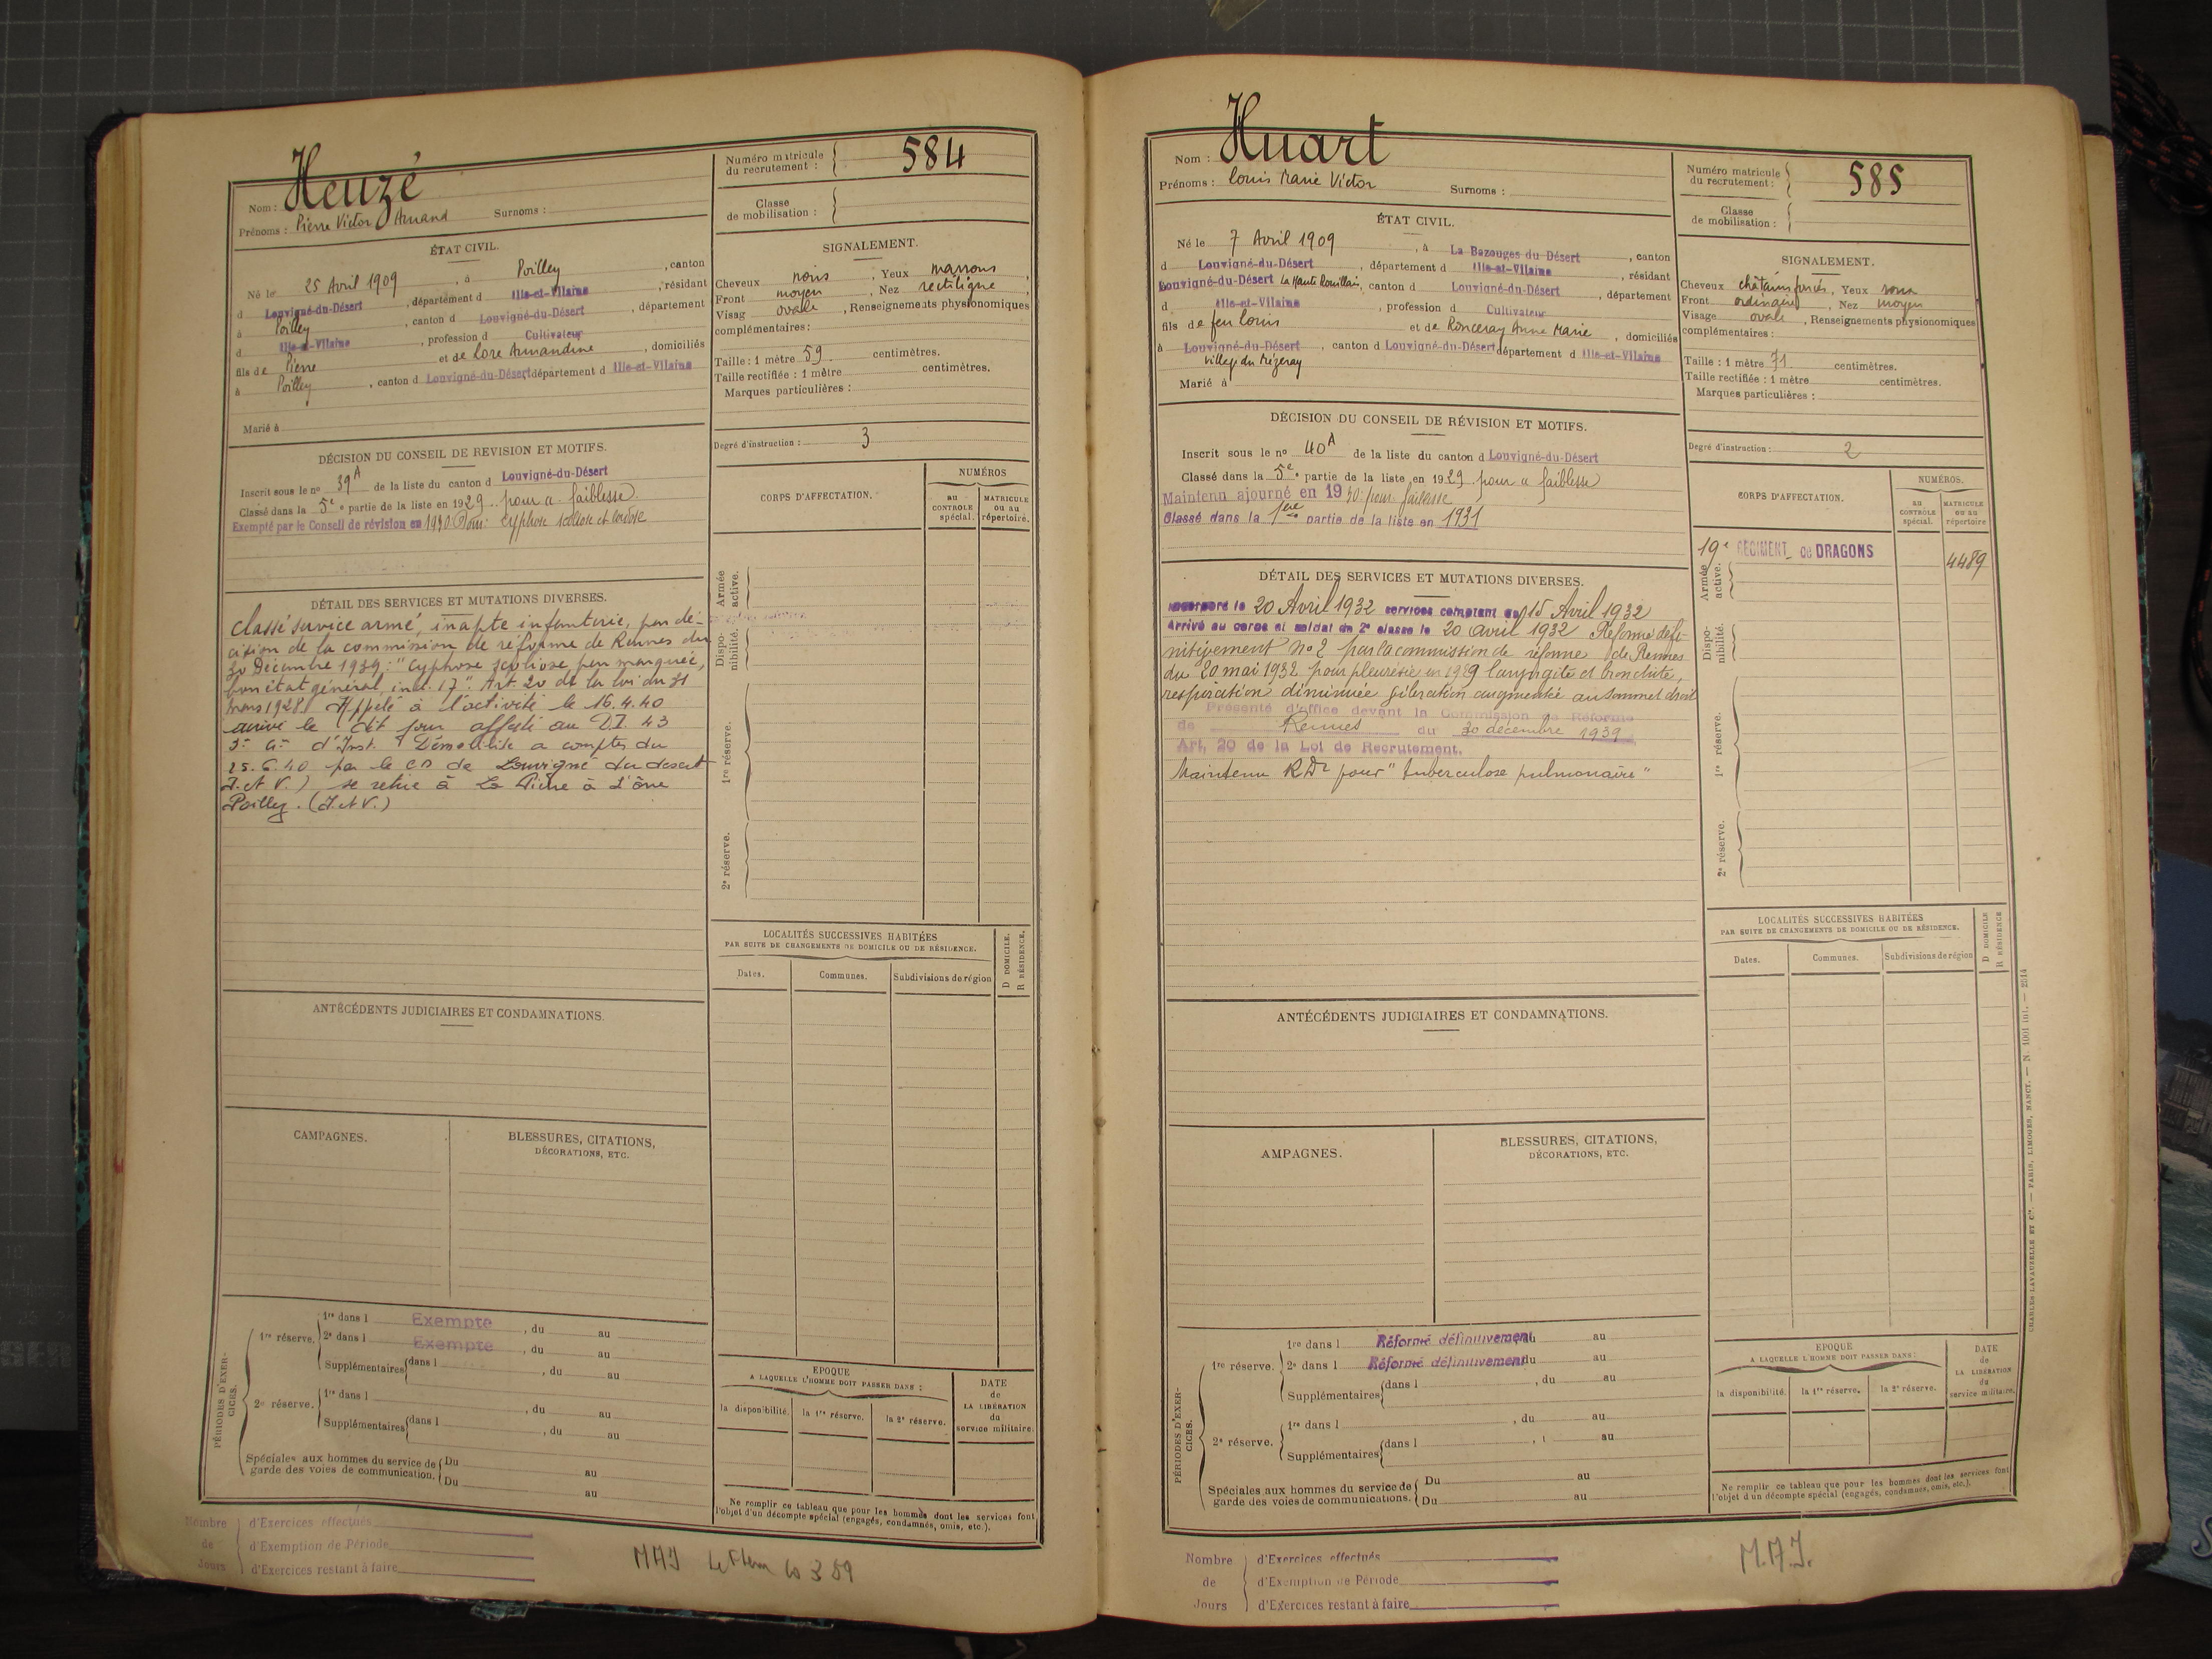 Heuzé
Nom :
Prénoms : Pierre Victor Amand Surnoms :
Numéro matricule du recrutement : 584
Classe de mobilisation :
ÉTAT CIVIL.
Né le 25 Avril 1909, à Poilley, canton
d Louvigné-du-Désert, département d Ille-et-Vilaine, résidant
à Poilley, canton d Louvigné-du-Désert, département
d Ille-et-Vilaine, profession d Cultivateur
fils de Pierre et de Lore Amandine, domiciliés
à Poilley, canton d Louvigné-du-Désert département d Ille-et-Vilaine
Marié à
SIGNALEMENT.
Cheveux noirs, Yeux marrons,
Front moyen, Nez rectiligne,
Visag ovale, Renseignements physionomiques
complémentaires :
Taille : 1 mètre 59 centimètres.
Taille rectifiée : 1 mètre centimètres.
Marques particulières :
Degré d'instruction : 3
DÉCISION DU CONSEIL DE RÉVISION ET MOTIFS.
Inscrit sous le no 39A de la liste du canton d Louvigné-du-Désert
Classé dans la 5e partie de la liste en 1929 pour a faiblesse
Exempté par le Conseil de révision en 1930 Pour: cyphose scoliose et lordose
DÉTAIL DES SERVICES ET MUTATIONS DIVERSES.
Classé service armé, inapte infanterie, par dé-
cision de la commission de réforme de Rennes du
20 Décembre 1939 : "Cyphose scoliose peu marquée,
bon état général, ind. 17". Art. 20 de la loi du 31
mars 1928. Appelé à l'activité le 16.4.40
arrivé le dit jour affecté au D.I. 43
3e Cie d'Inst. Démobilisé a compter du
25.6.40 par le CD de Louvigné du desert
(I. et V.) se retire à La Pière à l'âne
Poilley. (I. et V.)
CORPS D'AFFECTATION.
NUMÉROS
au CONTROLE spécial.
MATRICULE ou au répertoire.
Armée active.
Dispo-nibilité.
1re réserve.
2e réserve.
LOCALITÉS SUCCESSIVES HABITÉES
PAR SUITE DE CHANGEMENTS DE DOMICILE OU DE RÉSIDENCE.
Dates. Communes. Subdivisions de région
D DOMICILE. R RÉSIDENCE.
ANTÉCÉDENTS JUDICIAIRES ET CONDAMNATIONS.
CAMPAGNES.
BLESSURES, CITATIONS,
DÉCORATIONS, ETC.
PÉRIODES D'EXER-CICES.
1re réserve. 1re dans l Exempte, du au
2e dans l Exempte, du au
Supplémentaires dans l, du au
2e réserve. 1re dans l, du au
Supplémentaires dans l, du au
Spéciales aux hommes du service de Du au
garde des voies de communication. Du au
EPOQUE
A LAQUELLE L'HOMME DOIT PASSER DANS :
la disponibilité. la 1re réserve. la 2e réserve.
DATE de LA LIBÉRATION du service militaire.
Ne remplir ce tableau que pour les hommes dont les services font
l'objet d'un décompte spécial (engagés, condamnés, omis, etc.).
Nombre de Jours
d'Exercices effectués
d'Exemption de Période
d'Exercices restant à faire
MAJ
Huart
Nom :
Prénoms : Louis Marie Victor Surnoms :
Numéro matricule du recrutement : 585
Classe de mobilisation :
ÉTAT CIVIL.
Né le 7 Avril 1909, à La Bazouges du Désert, canton
d Louvigné-du-Désert, département d Ille-et-Vilaine, résidant
Louvigné-du-Désert La Haute Rouillais, canton d Louvigné-du-Désert, département
d Ille-et-Vilaine, profession d Cultivateur
fils de feu Louis et de Ronceray Anne Marie, domiciliés
à Louvigné-du-Désert, canton d Louvigné-du-Désert département d Ille-et-Vilaine
village du Mézeray
Marié à
SIGNALEMENT.
Cheveux châtains foncés, Yeux roux
Front ordinaire, Nez moyen
Visage ovale, Renseignements physionomiques
complémentaires :
Taille : 1 mètre 71 centimètres.
Taille rectifiée : 1 mètre centimètres.
Marques particulières :
Degré d'instruction : 2
DÉCISION DU CONSEIL DE RÉVISION ET MOTIFS.
Inscrit sous le no 40A de la liste du canton d Louvigné-du-Désert
Classé dans la 5e partie de la liste en 1929 pour a faiblesse
Maintenu ajourné en 1930 pour faiblesse
Classé dans la 1ère partie de la liste en 1931
DÉTAIL DES SERVICES ET MUTATIONS DIVERSES.
Incorporé le 20 Avril 1932 services comptant du 15 Avril 1932
Arrivé au corps et soldat de 2e classe le 20 avril 1932 Réformé défi-
nitivement no 2 par la commission de réforme de Rennes
du 20 mai 1932 pour pleurésie en 1929 laryngite et bronchite,
respiration diminuée vibration augmentée au sommet droit
Présenté d'office devant la Commission de Réforme
de Rennes du 20 décembre 1939
Art. 20 de la Loi de Recrutement.
Maintenu RD2 pour "tuberculose pulmonaire"
CORPS D'AFFECTATION.
NUMÉROS.
au CONTROLE spécial.
MATRICULE ou au répertoire
19e RÉGIMENT de DRAGONS 4489
Armée active.
Dispo-nibilité.
1re réserve.
2e réserve.
LOCALITÉS SUCCESSIVES HABITÉES
PAR SUITE DE CHANGEMENTS DE DOMICILE OU DE RÉSIDENCE.
Dates. Communes. Subdivisions de région
D DOMICILE R RÉSIDENCE
ANTÉCÉDENTS JUDICIAIRES ET CONDAMNATIONS.
AMPAGNES.
BLESSURES, CITATIONS,
DÉCORATIONS, ETC.
PÉRIODES D'EXER-CICES.
1re réserve. 1re dans l Réformé définitivement du au
2e dans l Réformé définitivement du au
Supplémentaires dans l, du au
2e réserve. 1re dans l, du au
Supplémentaires dans l, au
Spéciales aux hommes du service de Du au
garde des voies de communications. Du au
EPOQUE
A LAQUELLE L'HOMME DOIT PASSER DANS :
la disponibilité. la 1re réserve. la 2e réserve.
DATE de LA LIBÉRATION du service militaire.
Ne remplir ce tableau que pour les hommes dont les services font
l'objet d'un décompte spécial (engagés, condamnés, omis, etc.).
CHARLES-LAVAUZELLE ET Cie. — PARIS, LIMOGES, NANCY. — N. 1001 int. — 2314
Nombre de Jours
d'Exercices effectués
d'Exemption de Période
d'Exercices restant à faire
M.A.J.